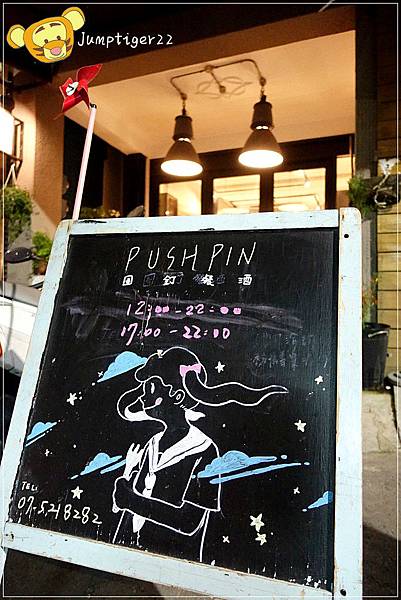 Jumptiger22
PUSHPIN
圖釘餐酒
12:00-22:00
17:00-22:00
TEL:
07-5218282